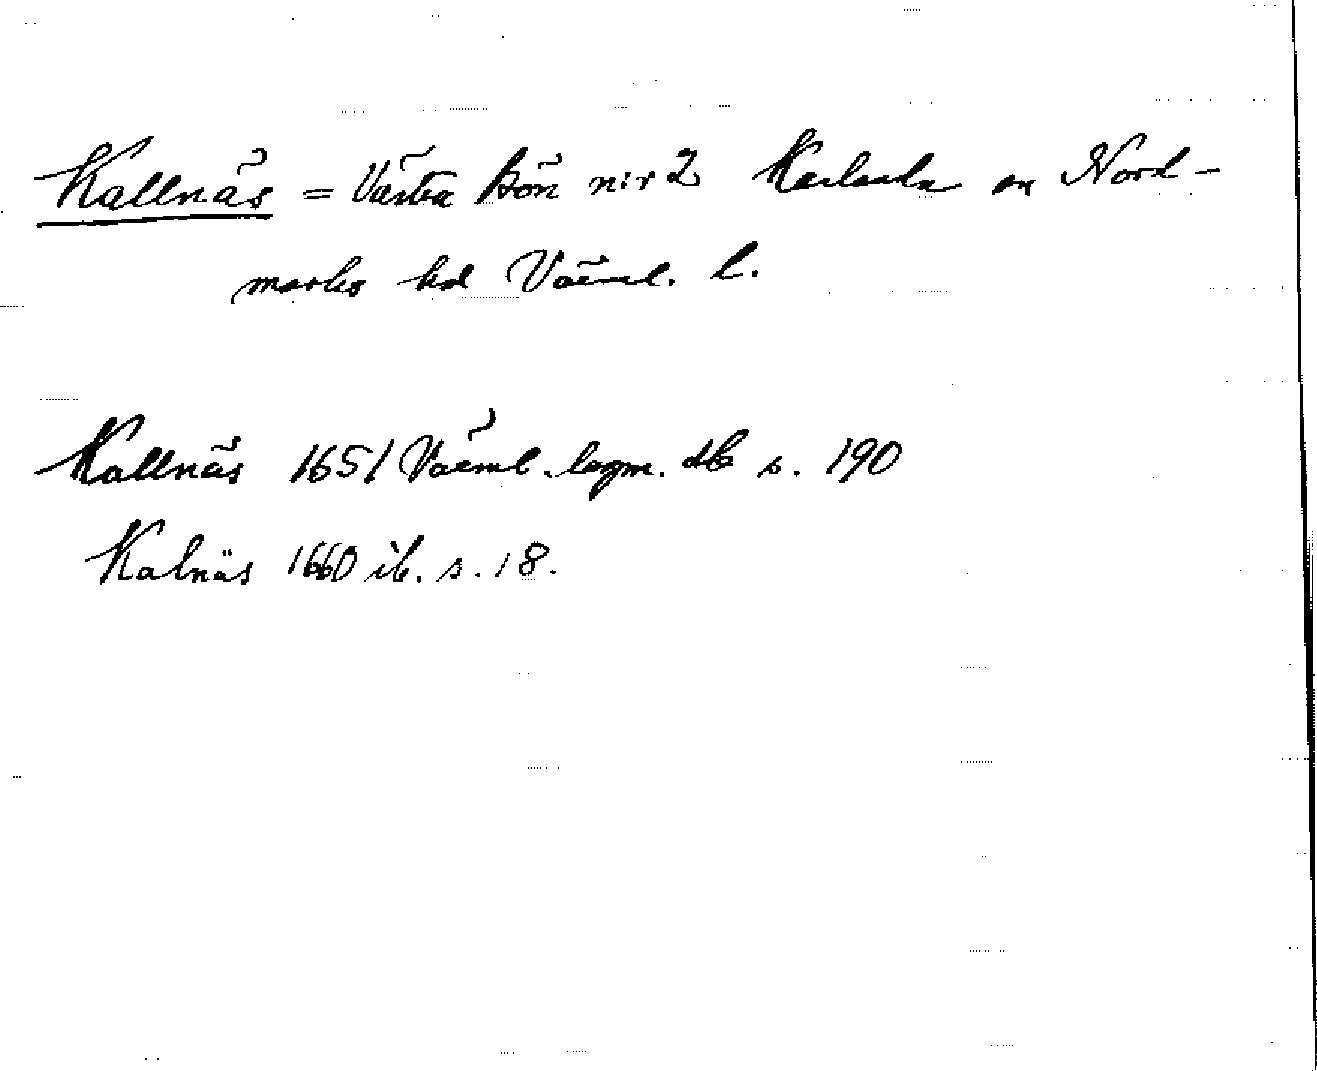 Kallnäs = Västra Bön n:r 2 Karlanda sn Nord-
marks hd Värml. l.
Kallnäs 1651 Värml. lagm. db s. 190
Kalnäs 1660 ib. s. 18.